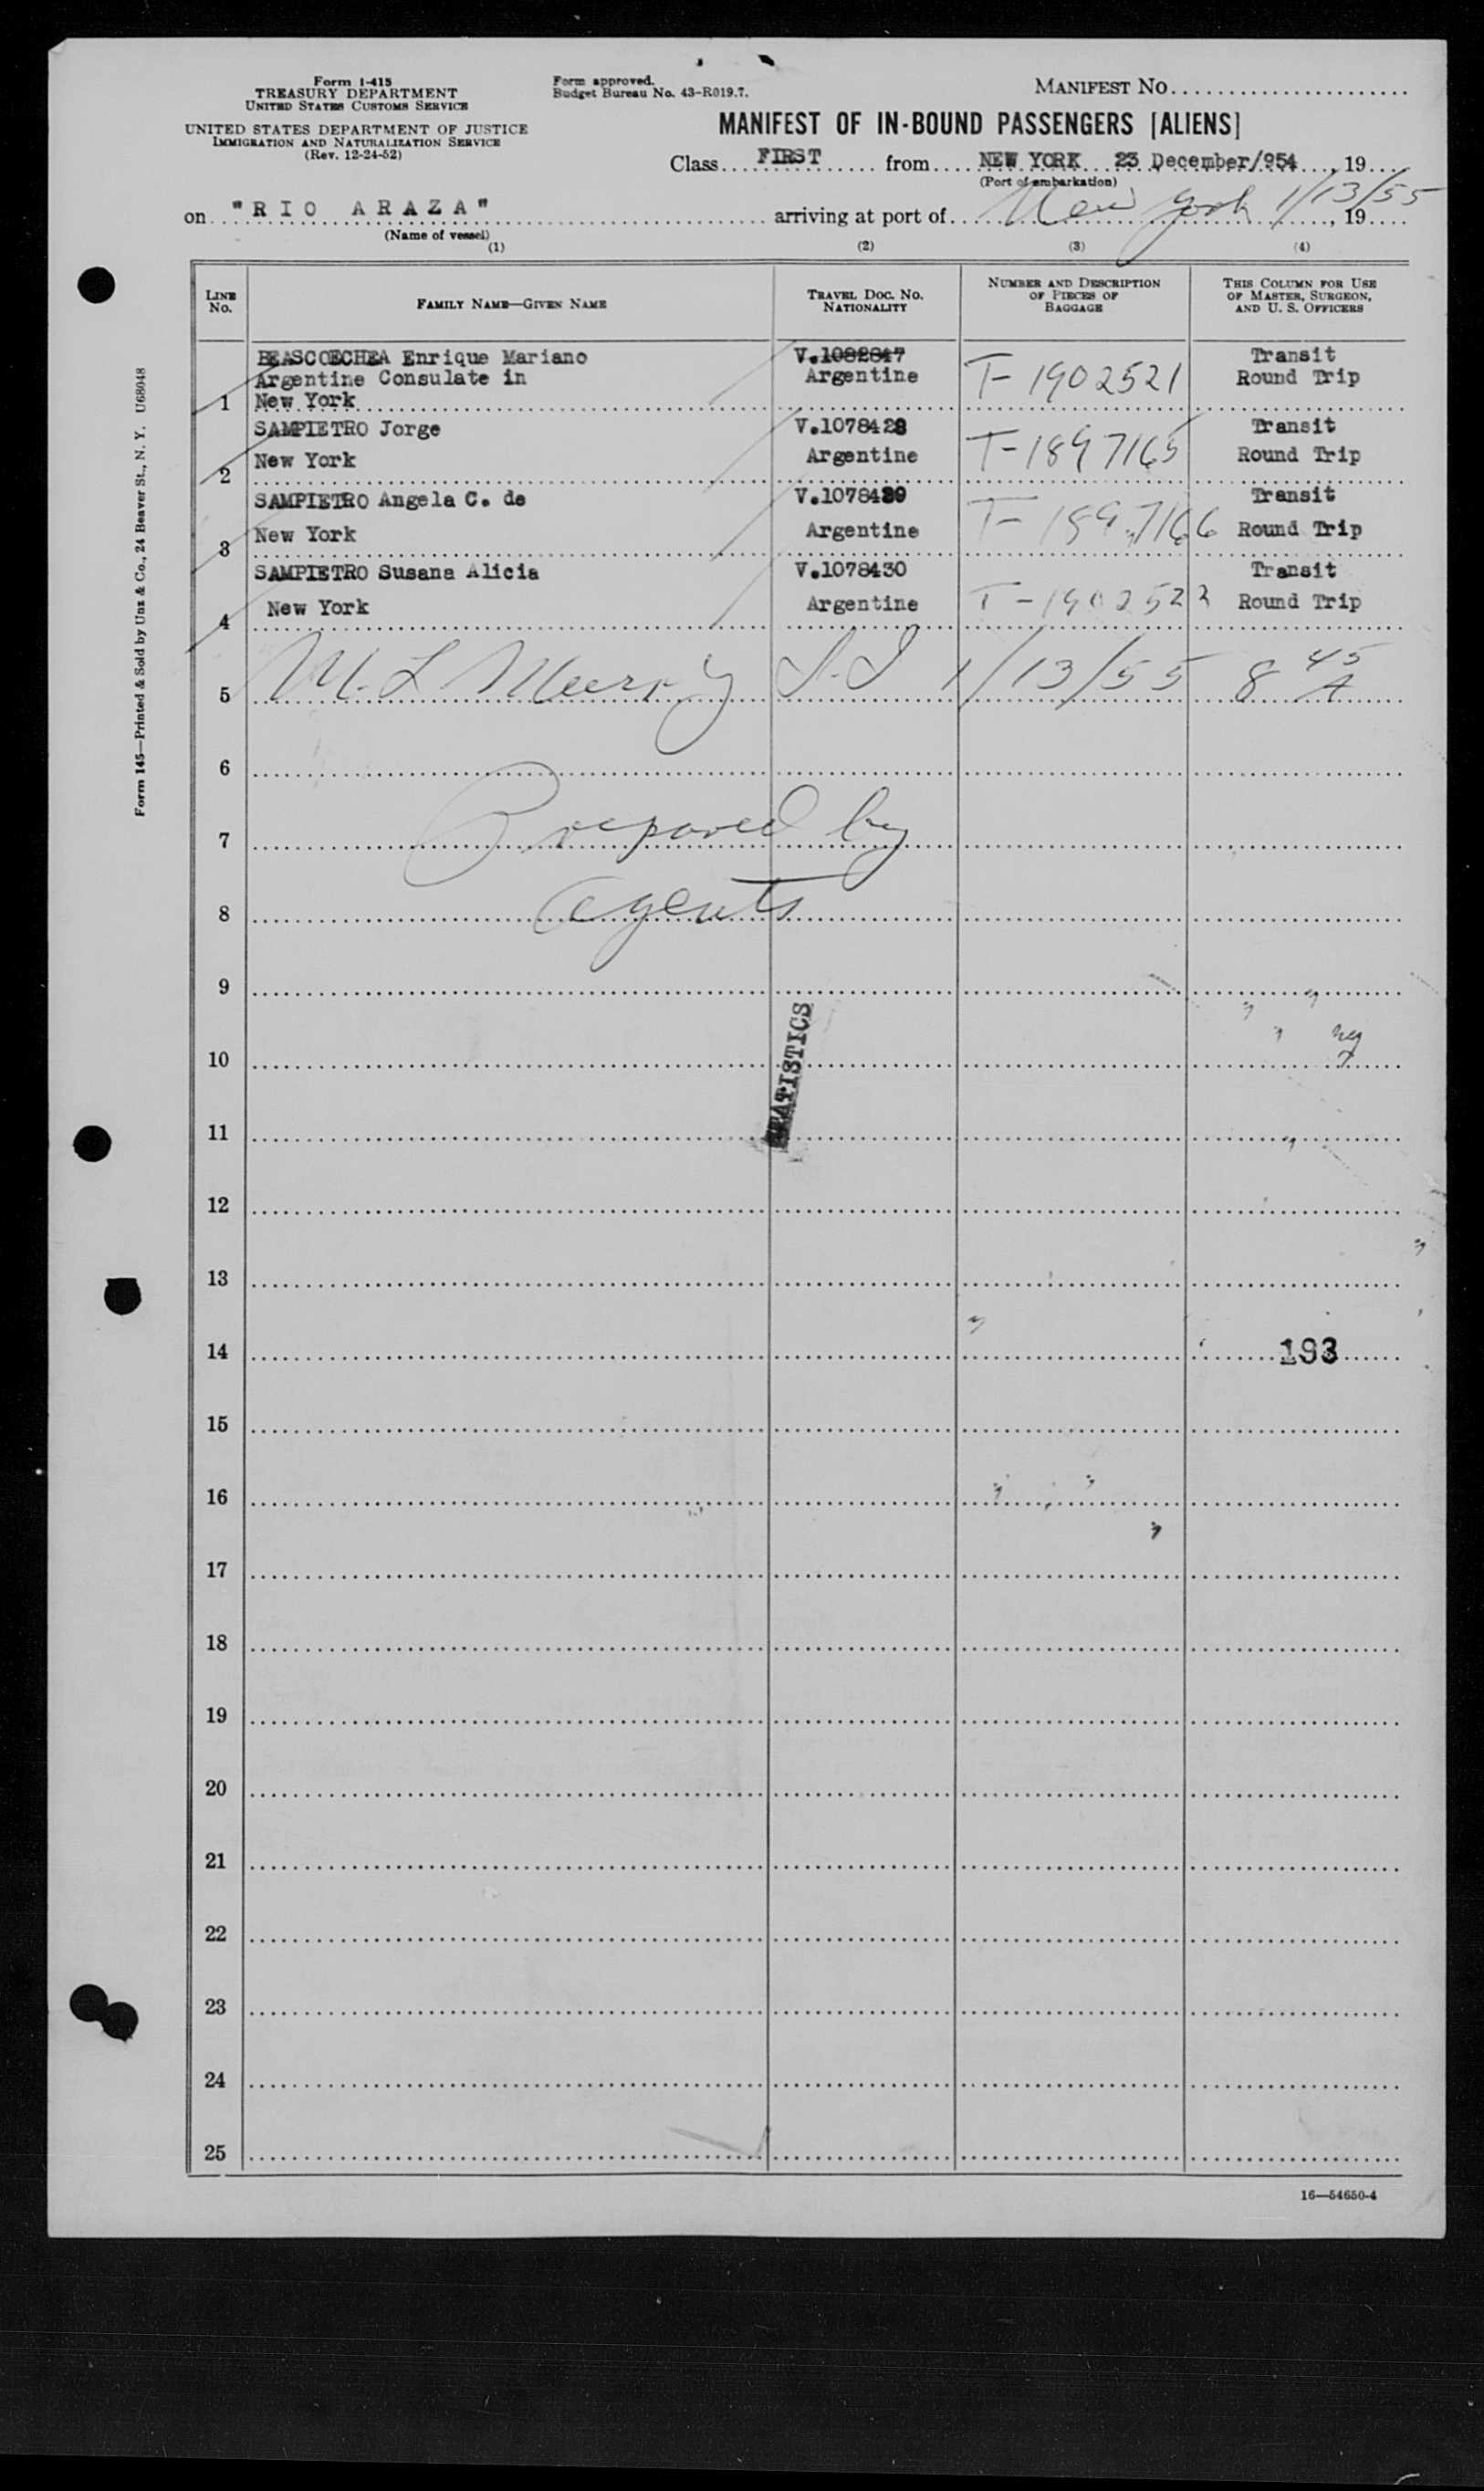 Form I-415
TREASURY DEPARTMENT
UNITED STATES CUSTOMS SERVICE
UNITED STATES DEPARTMENT OF JUSTICE
IMMIGRATION AND NATURALIZATION SERVICE
(Rev. 12-24-52)
Form approved.
Budget Bureau No. 43-R019.7.
MANIFEST NO.
MANIFEST OF IN-BOUND PASSENGERS [ALIENS]
Class FIRST from NEW YORK 23 December/954, 19
(Port of embarkation)
on "RIO ARAZA" arriving at port of New York 1/13/55, 19
(Name of vessel)
(1) (2) (3) (4)
LINE NO. FAMILY NAME—GIVEN NAME TRAVEL DOC. NO. NATIONALITY NUMBER AND DESCRIPTION OF PIECES OF BAGGAGE THIS COLUMN FOR USE OF MASTER, SURGEON, AND U. S. OFFICERS
BEASCOECHEA Enrique Mariano V.1082847 Transit
Argentine Consulate in Argentine T-1902521 Round Trip
1 New York
SAMPIETRO Jorge V.1078428 Transit
2 New York Argentine T-1897165 Round Trip
SAMPIETRO Angela C. de V.1078429 Transit
3 New York Argentine T-1897166 Round Trip
SAMPIETRO Susana Alicia V.1078430 Transit
4 New York Argentine T-1902522 Round Trip
5 M. L 1/13/55 8 45 A
6
7 Prepared by
8 agents
9
10
STATISTICS
11
12
13
14 193
15
16
17
18
19
20
21
22
23
24
25
16—54650-4
Form 145—Printed & Sold by Unz & Co., 24 Beaver St., N. Y. U68048